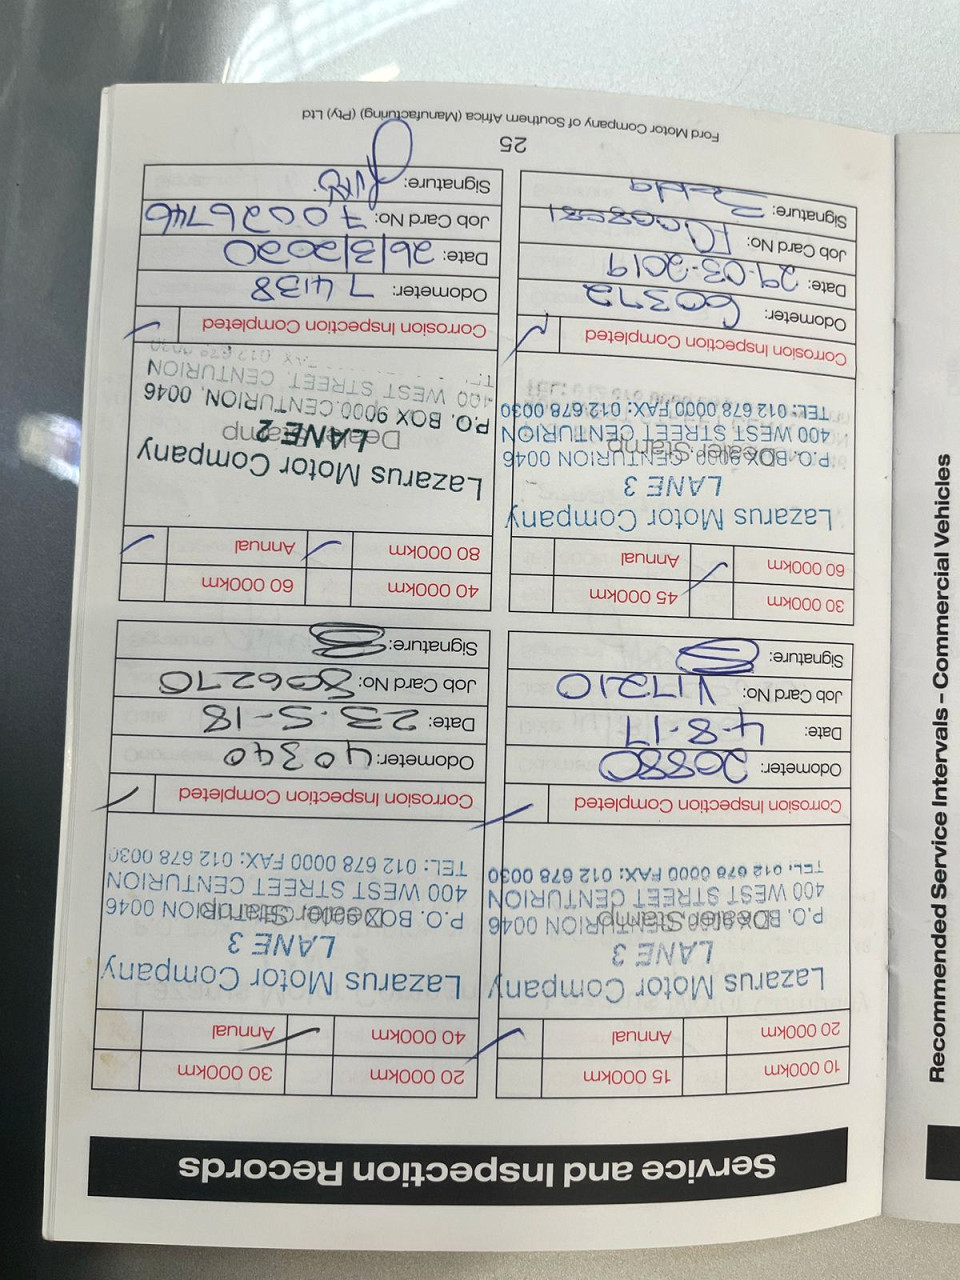 Service and Inspection Records
10 000km 15 000km
20 000km Annual
Lazarus Motor Company
LANE 3
Dealer Stamp
P.O. BOX 9000 CENTURION 0046
400 WEST STREET CENTURION
TEL: 012 678 0000 FAX: 012 678 0030
Corrosion Inspection Completed
Odometer: 20880
Date: 4-8-17
Job Card No: V17210
Signature:
20 000km 30 000km
40 000km Annual
Lazarus Motor Company
LANE 3
Dealer Stamp
P.O. BOX 9000 CENTURION 0046
400 WEST STREET CENTURION
TEL: 012 678 0000 FAX: 012 678 0030
Corrosion Inspection Completed
Odometer: 40340
Date: 23.5-18
Job Card No: 806270
Signature:
30 000km 45 000km
60 000km Annual
Lazarus Motor Company
LANE 3
Dealer Stamp
P.O. BOX 9000 CENTURION 0046
400 WEST STREET CENTURION
TEL: 012 678 0000 FAX: 012 678 0030
Corrosion Inspection Completed
Odometer: 60372
Date: 29-03-2019
Job Card No:
Signature:
40 000km 60 000km
80 000km Annual
Lazarus Motor Company
LANE 2
Dealer Stamp
P.O. BOX 9000 CENTURION, 0046
400 WEST STREET, CENTURION
Corrosion Inspection Completed
Odometer: 74138
Date: 26/3/2020
Job Card No: 70026746
Signature:
25
Ford Motor Company of Southern Africa (Manufacturing) (Pty) Ltd
Recommended Service Intervals - Commercial Vehicles